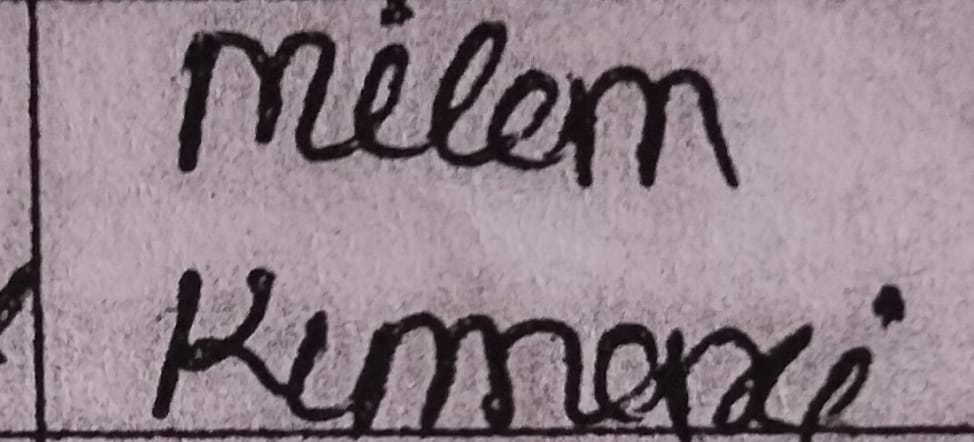 milem
Kumari